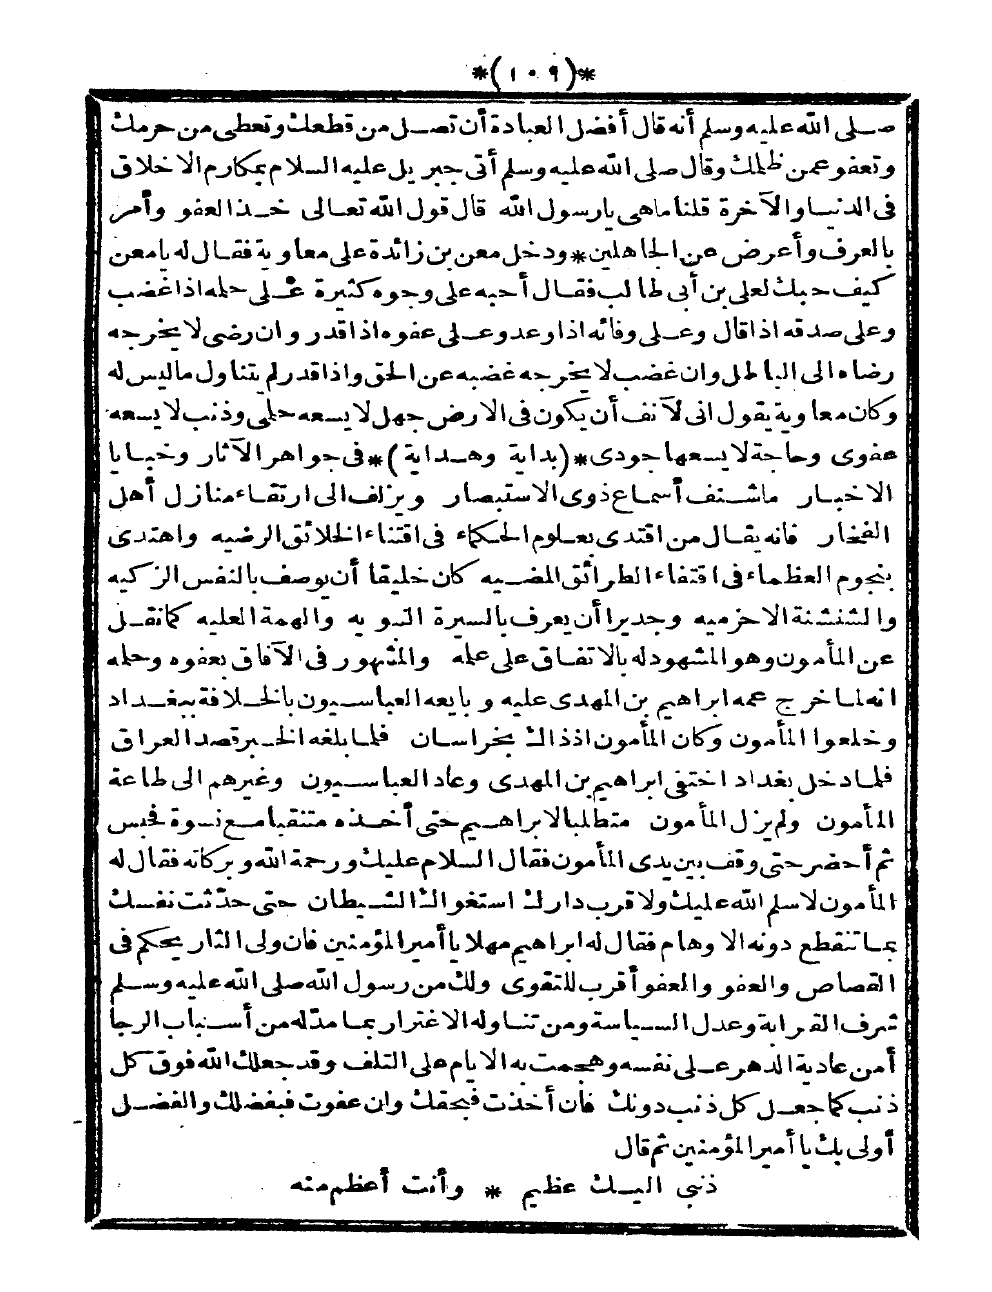 *(١٠٩)*
صلى الله عليه وسلم أنه قال أفضل العبادة أن تصل من قطعك وتعطى من حرمك
وتعفو عمن ظلمك وقال صلى الله عليه وسلم أتى جبريل عليه السلام بمكارم الاخلاق
فى الدنيا والآخرة قلنا ماهى يارسول الله قال قول الله تعالى خذ العفو وأمر
بالعرف وأعرض عن الجاهلين * ودخل معن بن زائدة على معاوية فقال له يامعن
كيف حبك لعلى بن أبى طالب فقال أحبه على وجوه كثيرة على حلمه اذا غضب
وعلى صدقه اذا قال وعلى وفائه اذا وعد وعلى عفوه اذا قدر وان رضى لا يخرجه
رضاه الى الباطل وان غضب لا يخرجه غضبه عن الحق واذا قدر لم يتناول ماليس له
وكان معاوية يقول انى لآنف أن يكون فى الارض جهل لا يسعه حلمى وذنب لا يسعه
عفوى وحاجة لا يسعها جودى * (بداية وهداية) * فى جواهر الآثار وخبايا
الاخبار ماشنف أسماع ذوى الاستبصار ويزلف الى ارتقاء منازل أهل
الفخار فانه يقال من اقتدى بعلوم الحكماء فى اقتناء الخلائق الرضيه واهتدى
بنجوم العظماء فى اقتفاء الطرائق المضيه كان خليقا أن يوصف بالنفس الزكيه
والشنشنة الاخزميه وجديرا أن يعرف بالسيرة النبويه والهمة العليه كمانقل
عن المأمون وهو المشهود له بالاتفاق على علمه والمشهور فى الآفاق بعفوه وحلمه
انه لما خرج عمه ابراهيم بن المهدى عليه وبايعه العباسيون بالخلافة ببغداد
وخلعوا المأمون وكان المأمون اذذاك بخراسان فلما بلغه الخبر قصد العراق
فلما دخل بغداد اختفى ابراهيم بن المهدى وعاد العباسيون وغيرهم الى طاعة
المأمون ولم يزل المأمون متطلبا لابراهيم حتى أخذه متنقبا مع نسوة فحبس
ثم أحضر حتى وقف بين يدى المأمون فقال السلام عليك ورحمة الله وبركاته فقال له
المأمون لاسلم الله عليك ولا قرب دارك استغواك الشيطان حتى حدثت نفسك
بما تنقطع دونه الاوهام فقال له ابراهيم مهلا يا أمير المؤمنين فان ولى الثار يحكم فى
القصاص والعفو والعفو أقرب للتقوى ولك من رسول الله صلى الله عليه وسلم
شرف القرابة وعدل السياسة ومن تناوله الاغترار بما مدّله من أسباب الرجا
أمن عادية الدهر على نفسه وهجمت به الايام على التلف وقد جعلك الله فوق كل
ذنب كما جعل كل ذنب دونك فان أخذت فبحقك وان عفوت فبفضلك والفضل
أولى بك يا أمير المؤمنين ثم قال
ذنبى اليك عظيم * وأنت أعظم منه